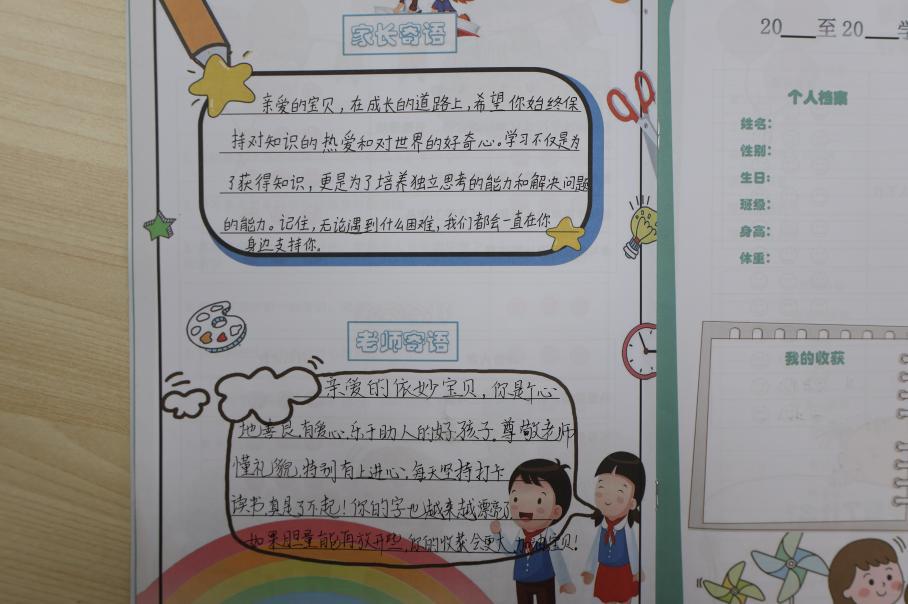 家长寄语
亲爱的宝贝，在成长的道路上，希望你始终保
持对知识的热爱和对世界的好奇心。学习不仅是为
了获得知识，更是为了培养独立思考的能力和解决问题
的能力。记住，无论遇到什么困难，我们都会一直在你
身边支持你。
老师寄语
亲爱的依妙宝贝，你是个心
地善良、有爱心、乐于助人的好孩子。尊敬老师
懂礼貌，特别有上进心，每天坚持打卡
读书，真是了不起！你的字也越来越漂亮了
如果胆量能再放开些，你的收获会更大，加油宝贝！
20 至20 学
个人档案
姓名：
性别：
生日：
班级：
身高：
体重：
我的收获